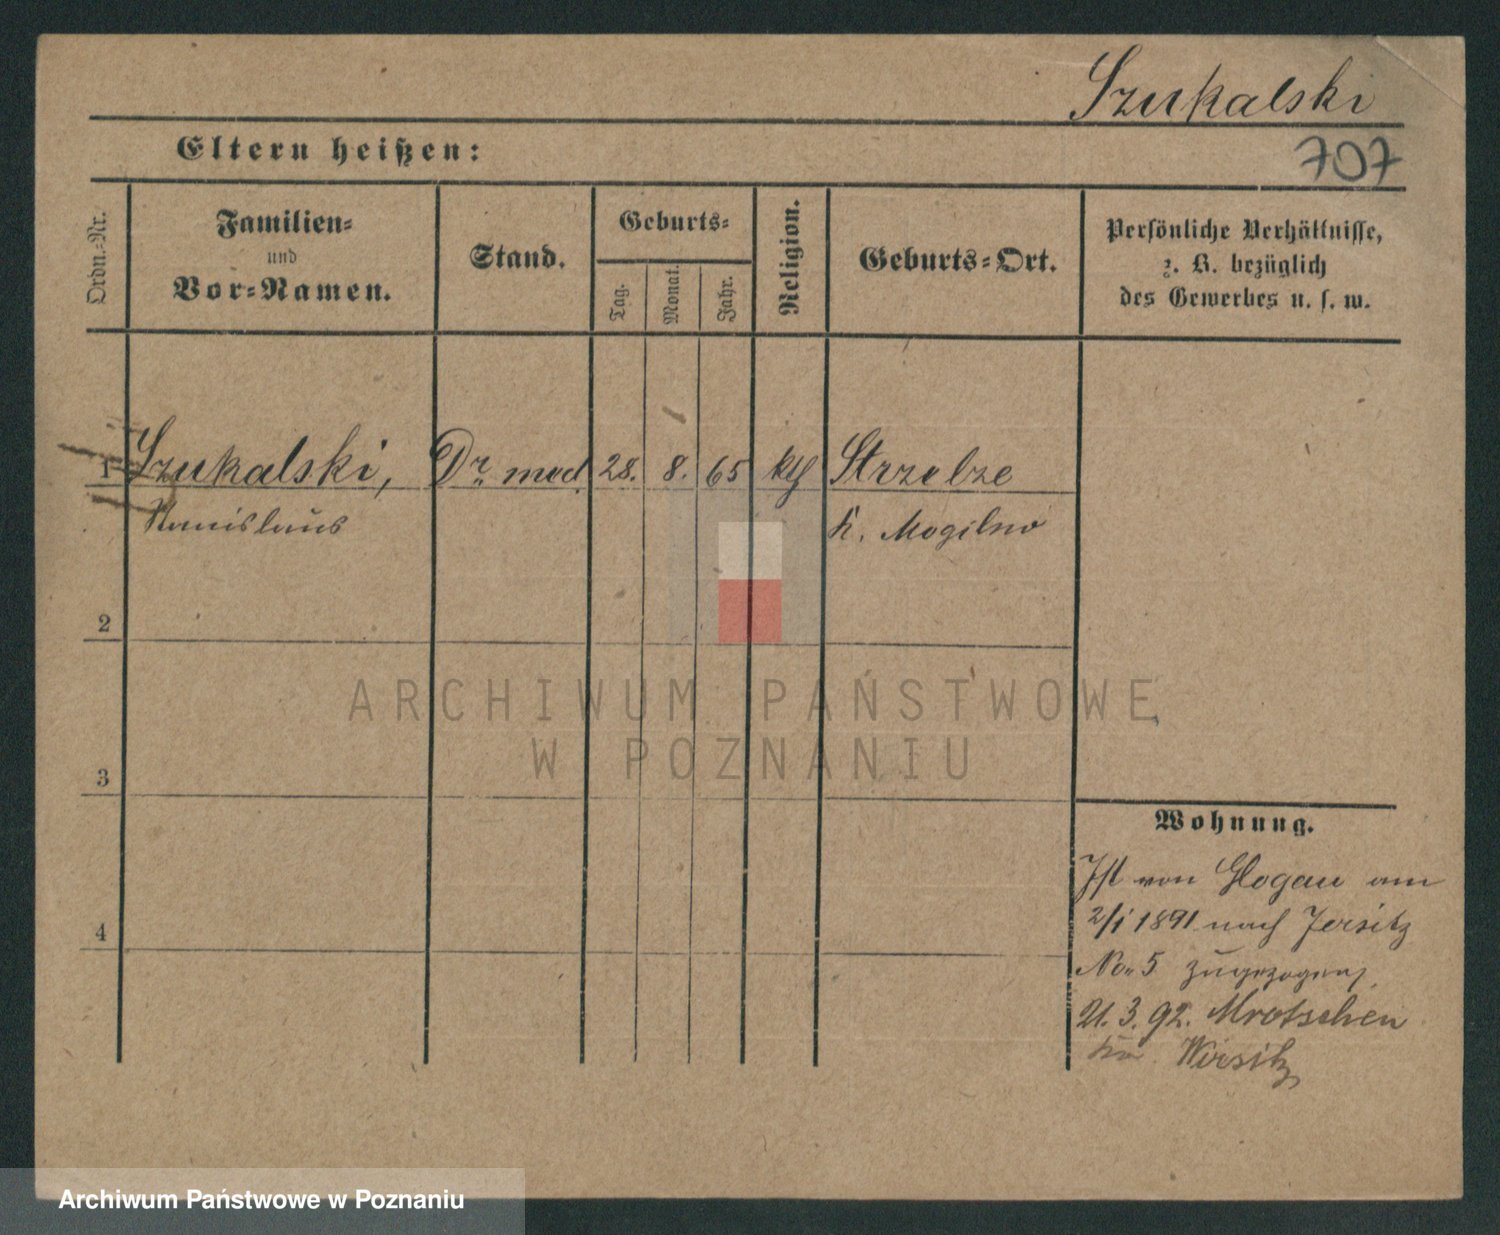 Szukalski
Eltern heißen:
707
Ordn.-Nr.
Familien-
und
Vor-Namen.
Stand.
Geburts-
Tag.
Monat.
Jahr.
Religion.
Geburts-Ort.
Persönliche Verhältnisse,
z. B. bezüglich
des Gewerbes u. s. w.
1 Szukalski, Dr. med. 28. 8. 65 kth Strzelze
Stanislaus K. Mogilno
2
3
4
Wohnung.
Ist von Glogau am
2/1 1891 nach Jersitz
No. 5 zugezogen
21. 3. 92. Mrotschen
Kr. Wirsitz
ARCHIWUM PAŃSTWOWE
W POZNANIU
Archiwum Państwowe w Poznaniu